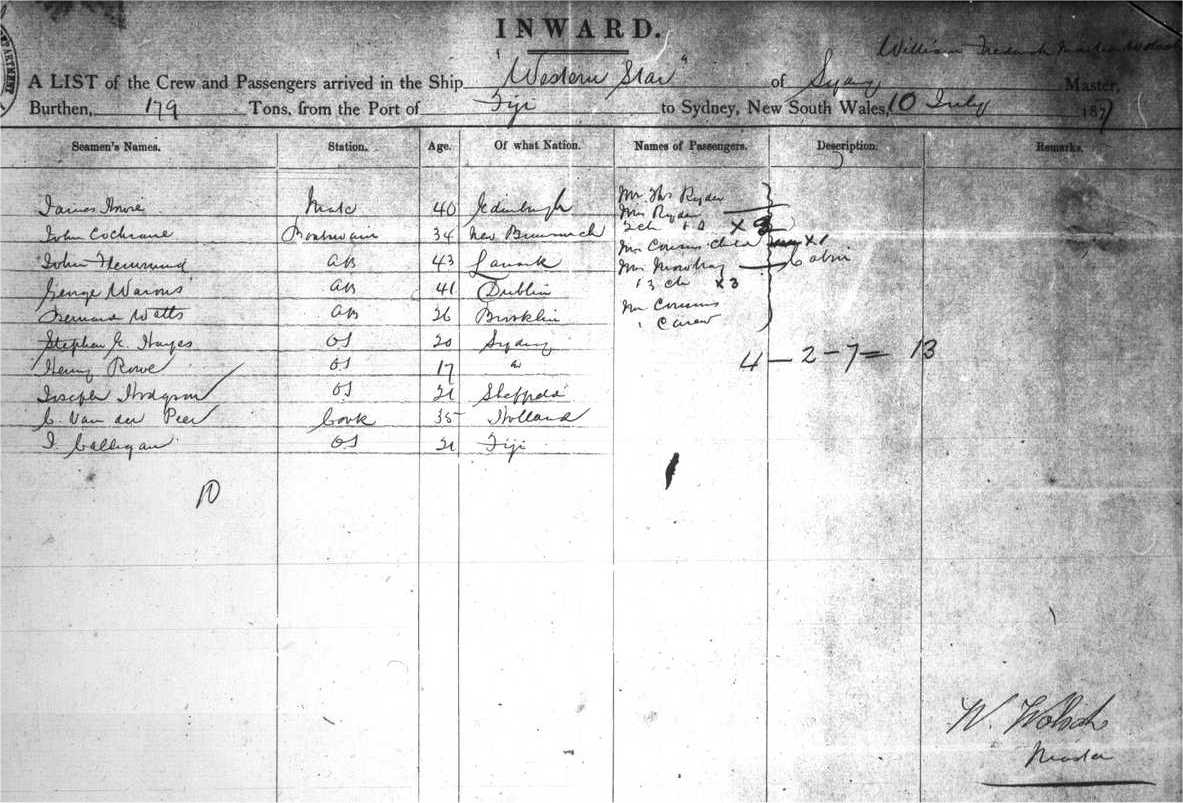 INWARD.
William Frederick
A LIST of the Crew and Passengers arrived in the Ship "Western Star" of Sydney Master,
Burthen, 179 Tons, from the Port of Fiji to Sydney, New South Wales, 10 July 1877
Seamen's Names. Station. Age. Of what Nation. Names of Passengers. Description. Remarks.
James Mate 40 Edinburgh Mr Thos Ryder
Mrs Ryder
John Cochrane Boatswain 34 New Brunswick 2 ch
Mrs Cousins child X1
John AB 43 Lanark Mrs Mowbray Cabin
George AB 41 Dublin 3 ch X3
Bernard Watts AB 26 Brooklin Mr Cousins
" Carew
Stephen G. Hayes OS 20 Sydney
4 - 2 - 7 = 13
Henry Rowe OS 17 "
Joseph Hodgson OS 21 Sheffield
C. Van der Peer Cook 35 Holland
J. Calligan OS 21 Fiji
10
W.
Master